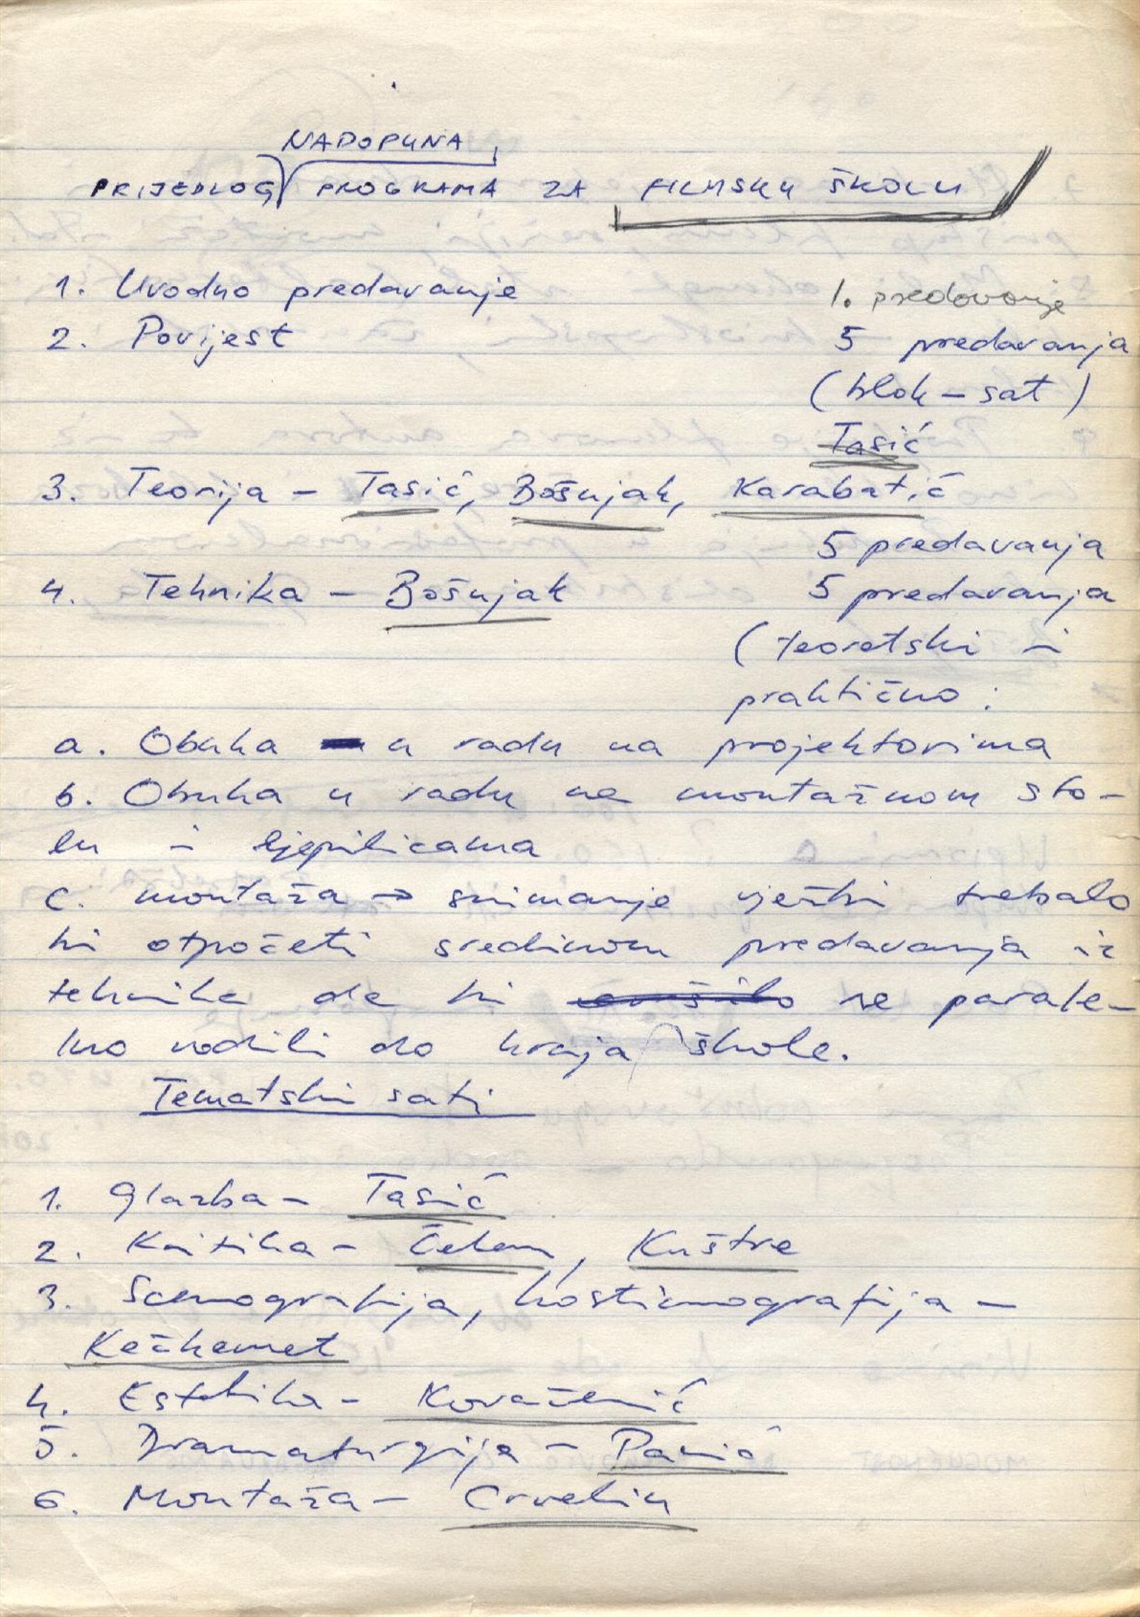 NADOPUNA,
PRIJEDLOG PROGRAMA ZA FILMSKU ŠKOLU
1. Uvodno predavanje 1. predavanje
2. Povijest 5 predavanja
(blok - sat)
Tasić
3. Teorija - Tasić, Bošnjak, Karabatić
5 predavanja
4. Tehnika - Bošnjak 5 predavanja
(teoretski i
praktično:
a. Obuka u radu na projektorima
b. Obuka u radu na montažnom sto-
lu i ljepilicama
c. montaža → snimanje vježbi trebalo
bi otpočeti sredinom predavanja iz
tehnike da bi se parale-
lno vodili do kraja škole.
Tematski sati
1. Glazba - Tasić
2. Kritika - Čelan, Kuštre
3. Scenografija, kostimografija -
Kečkemet
4. Estetika -
5. Dramaturgija -
6. Montaža - Crvelin